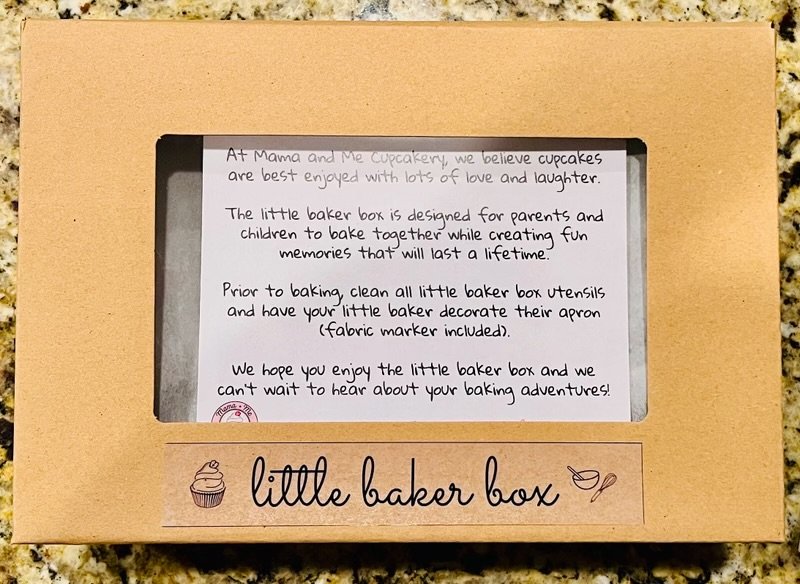 At Mama and Me Cupcakery, we believe cupcakes
are best enjoyed with lots of love and laughter.
The little baker box is designed for parents and
children to bake together while creating fun
memories that will last a lifetime.
Prior to baking, clean all little baker box utensils
and have your little baker decorate their apron
(fabric marker included).
We hope you enjoy the little baker box and we
can't wait to hear about your baking adventures!
Mama + Me
little baker box